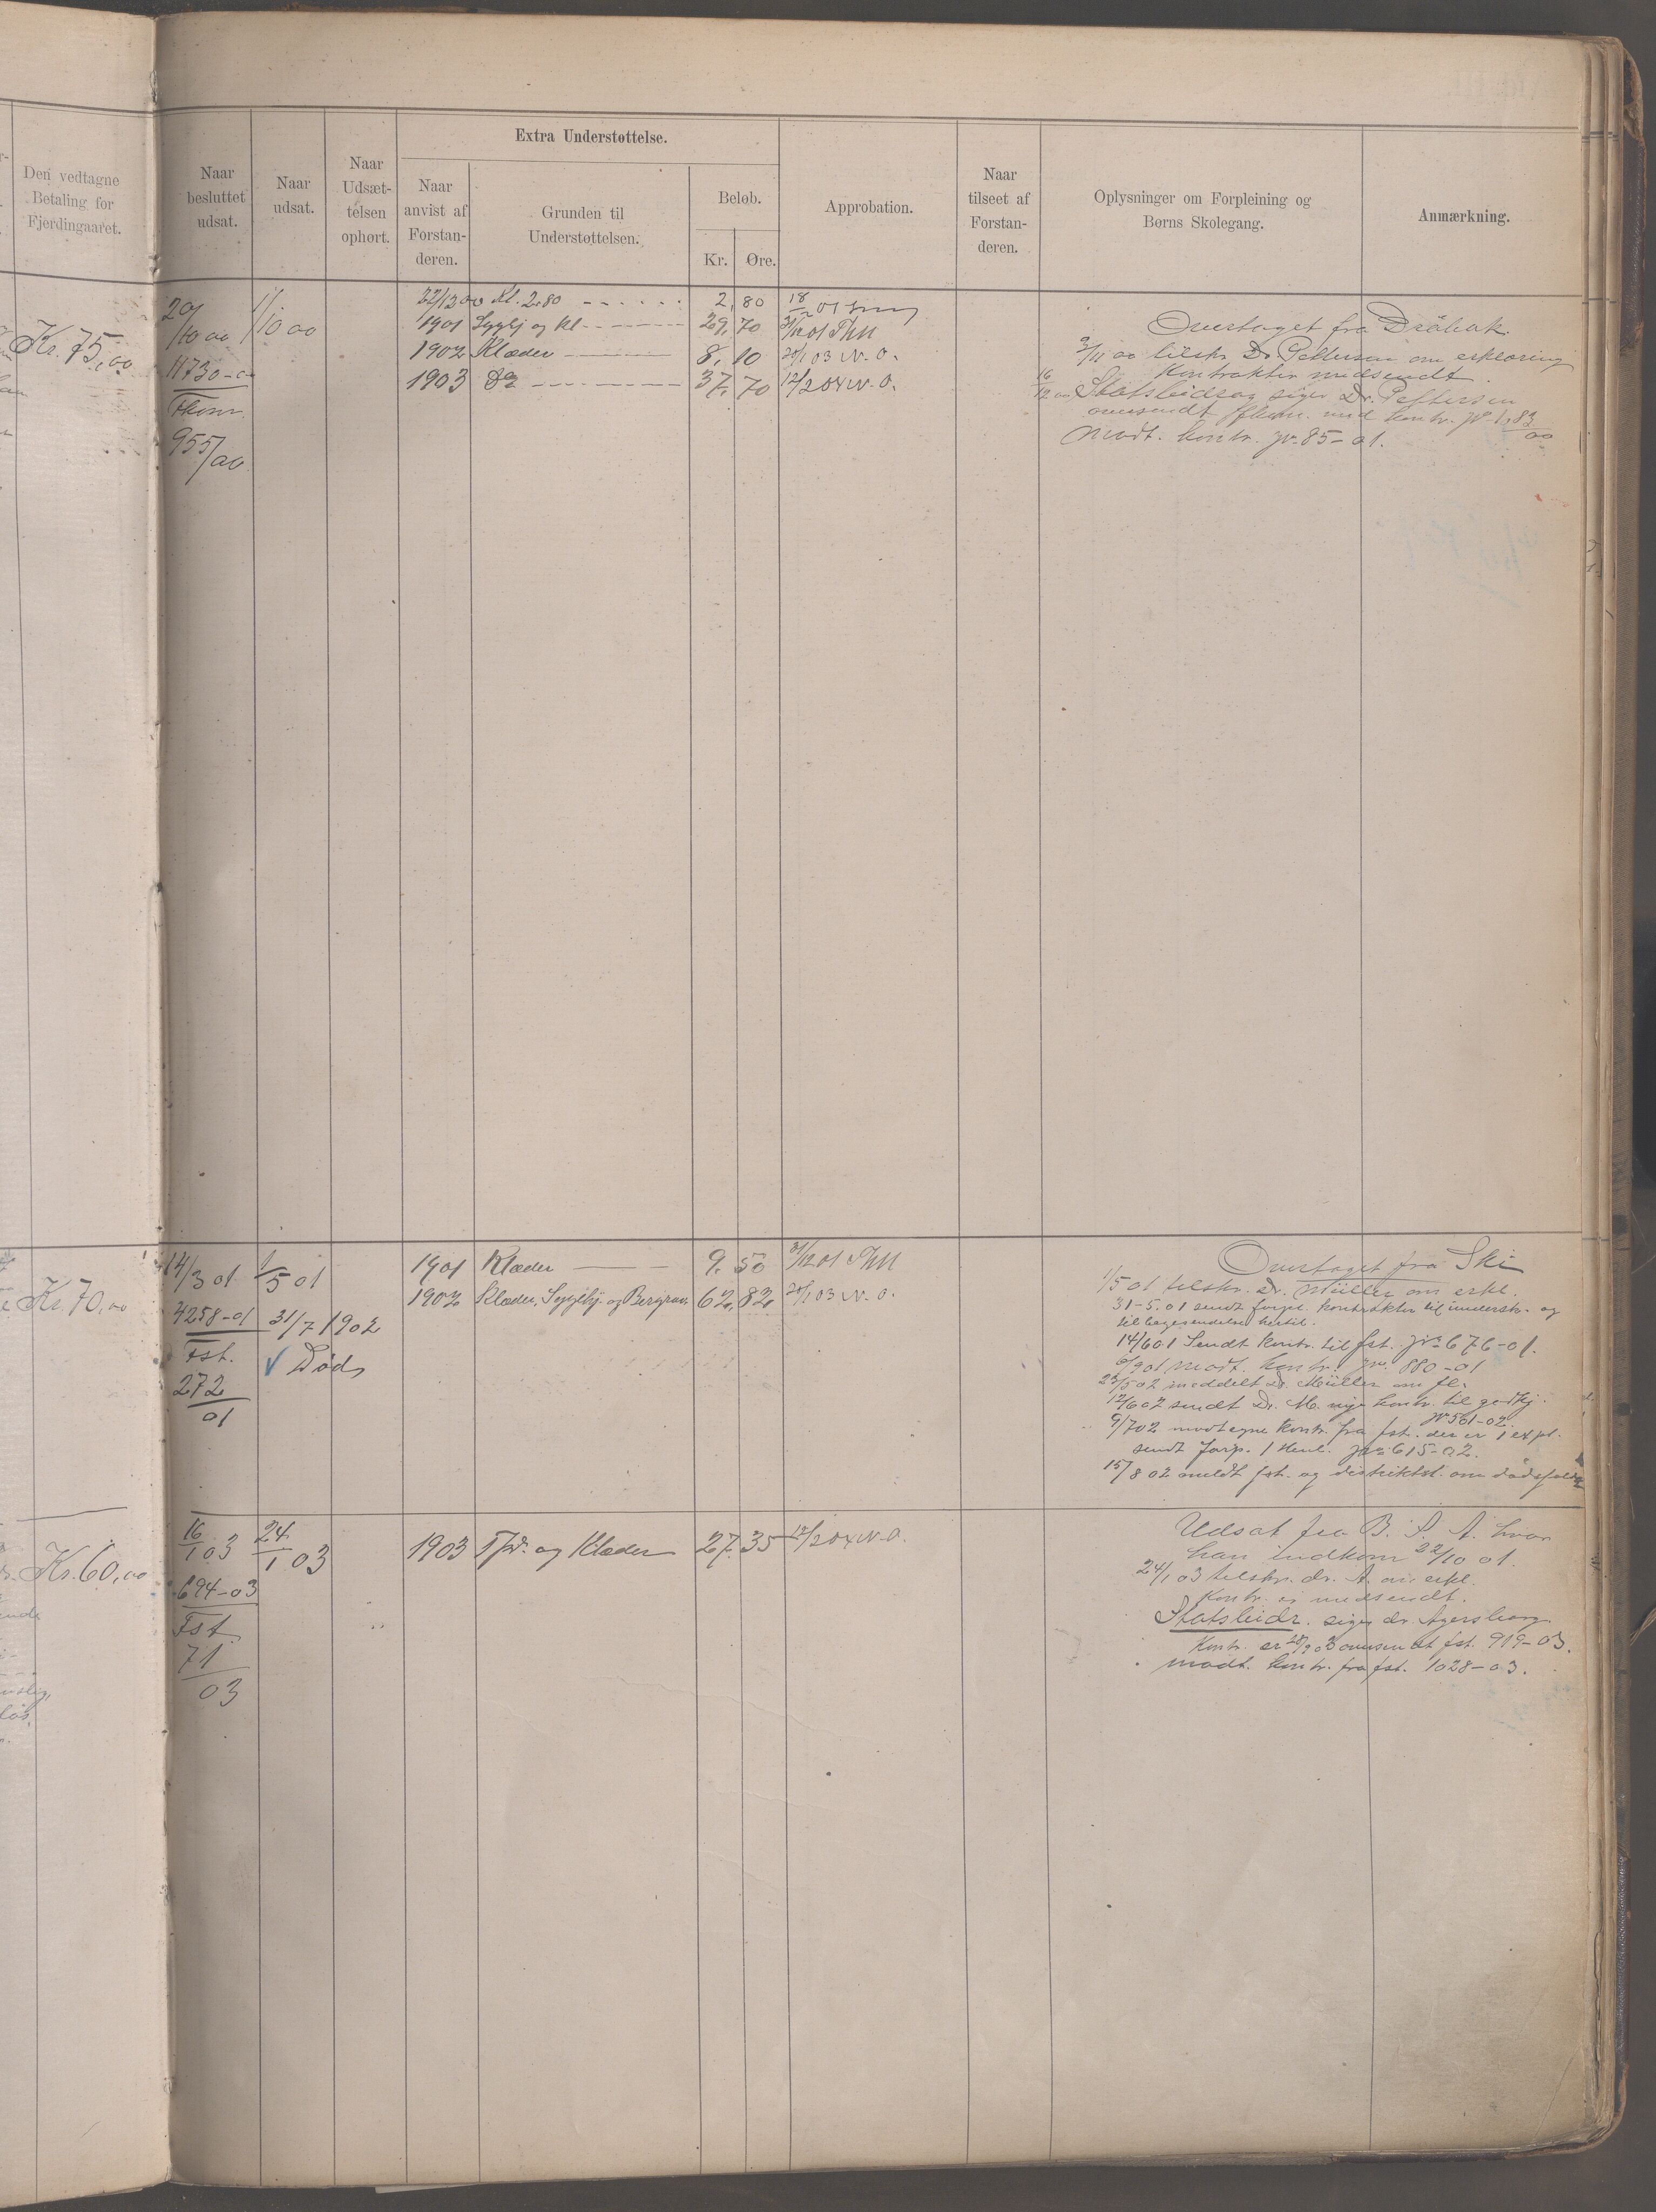 Den vedtagne
Betaling for
Fjerdingaaret.
Naar
besluttet
udsat.
Naar
udsat.
Naar
Udsæt-
telsen
ophørt.
Extra Understøttelse.
Naar
anvist af
Forstan-
deren.
Grunden til
Understøttelsen.
Beløb.
Kr. Øre.
Approbation.
Naar
tilseet af
Forstan-
deren.
Oplysninger om Forpleining og
Børns Skolegang.
Anmærkning.
Kr. 75,00
29/10 00
11730-00
Fkom.
955/00
1/10 00
22/12 00 Kl. 2.80 2,80 18/2 01
1901 Syghj og Kl 29,70 31/12 01 ThM
1902 Klæder 8,10 20/1 03 N.O.
1903 Do 37,70 12/2 04 N.O.
Overtaget fra Drøbak
3/11 00 tilskr. Dr. Pettersen om erklæring
Kontrakter medsendt.
16/12 00 Statsbidrag siger Dr. Pettersen
oversendt Fkom. med kontr. jr. 1183/00
Modt. kontr. jr. 85-01.
Kr. 70,00
14/3 01
4258-01
Fst.
272/01
1/5 01
31/7 1902
Død
1901 Klæder 9,50 31/12 01 ThM
1902 Klæder, Sygehj. og Begrav. 62,82 20/1 03 N.O.
Overtaget fra Ski
1/5 01 tilskr. Dr. Müller om erkl.
31-5.01 sendt forpl. kontrakter til underskr. og
tilbagesendelse hertil.
14/6 01 Sendt kontr. til fst. jr. 676-01.
/9 01 modt. kontr. jr. 880-01
23/5 02 meddelt Dr. Müller om fl.
12/6 02 sendt Dr. M. nye kontr. til godkj.
jr 501-02.
9/7 02 modt egne kontr. fra fst. der er 1 expl.
sendt forp. 1 Henl. jr. 615-02.
15/8 02 meldt fst. og distriktsl. om dødsfaldet
Kr. 60,00
16/1 03
694-03
Fst.
71/03
24/1 03
1903 og Klæder 27,35 12/2 04 N.O.
Udsat fra B. S. A. hvor
han indkom 22/10 01.
24/1 03 tilskr. dr. A. om erkl.
Kontr. er medsendt.
Statsbidr. siger dr Agersborg.
Kontr. er 28/9 03 oversendt fst. 919-03.
Modt. kontr. fra fst. 1028-03.